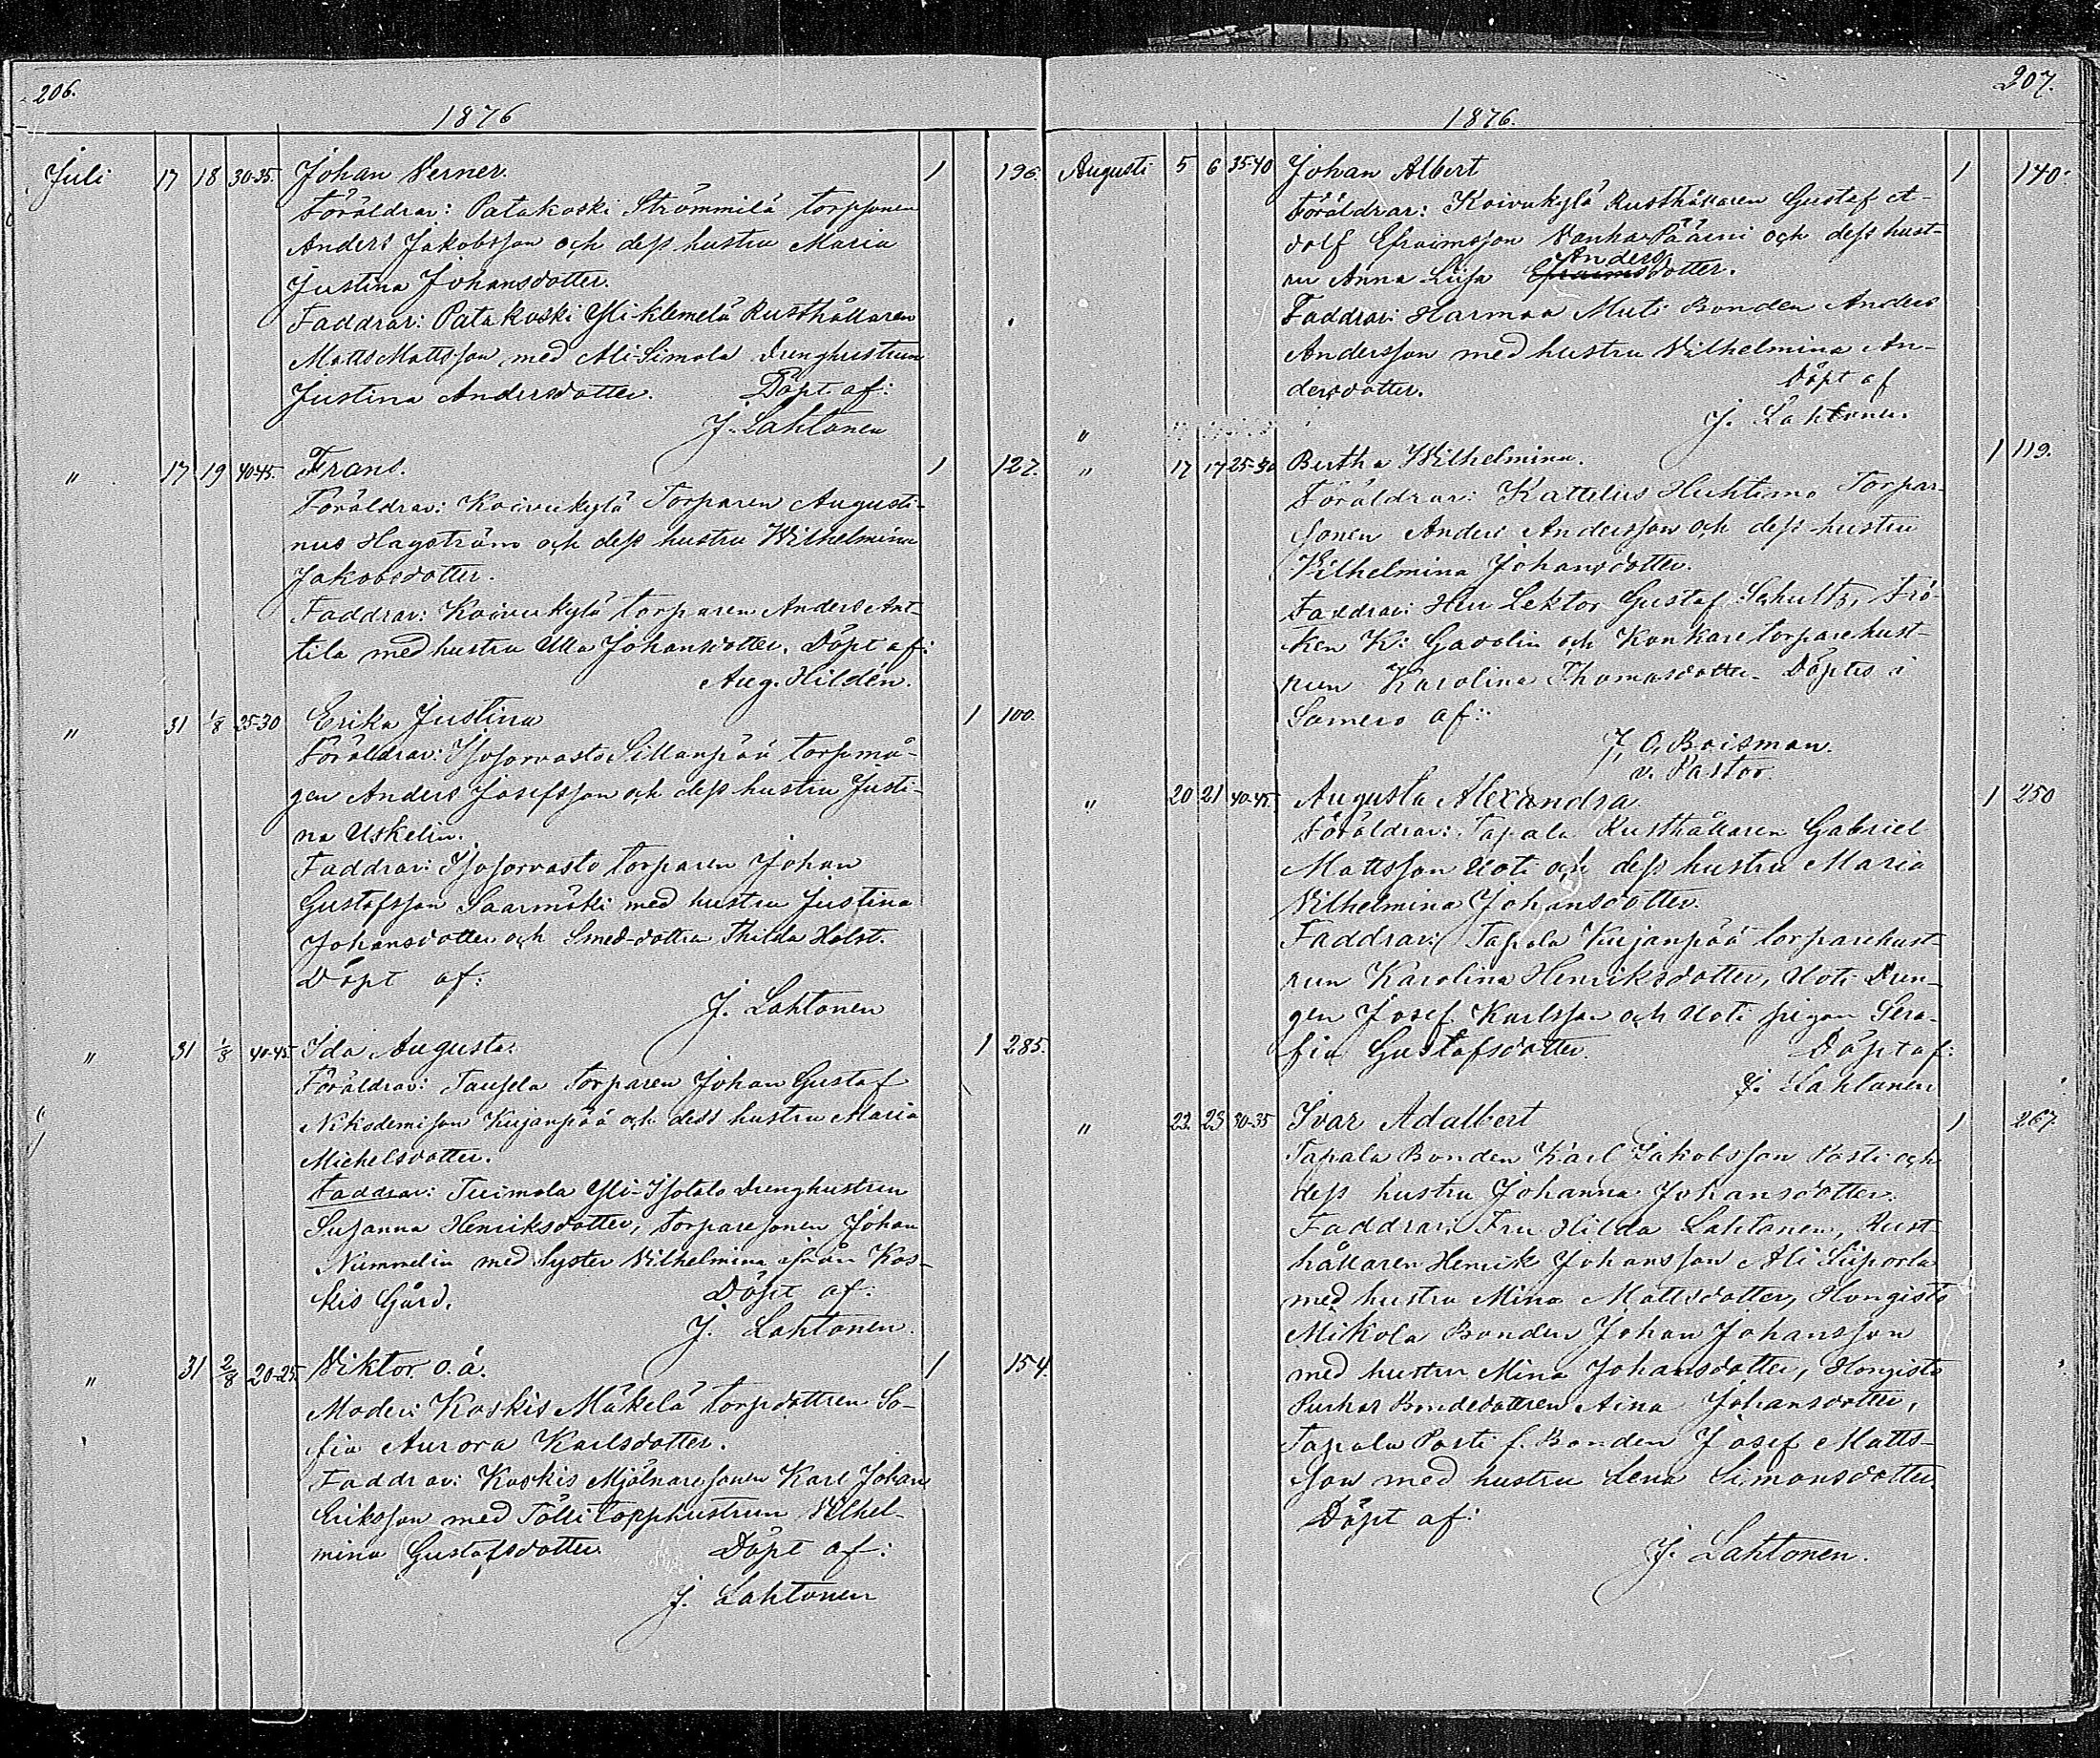 206.
1876
Juli 17 18 30-35. Johan Verner. 1 196.
Föräldrar: Patakoski Strömmilä torpsonen
Anders Jakobsson och dess hustru Maria
Justina Johansdotter.
Faddrar: Patakoski Yli-klemelä Rusthållaren
Matts Mattsson med Ali-Simola drenghustrun
Justina Andersdotter. Döpt af:
J. Lahtonen
" 17 19 40-45. Frans. 1 127.
Föräldrar: Koivukylä Torparen Augusti-
nus Hagström och dess hustru Wilhelmina
Jakobsdotter.
Faddrar: Koivukylä torparen Anders Ant-
tila med hustru Ulla Johansdotter. Döpt af:
Aug. Hildén.
" 31 1/8 25-30 Erika Justina 1 100.
Föräldrar: Isosorvasto Sillanpää torpmå-
gen Anders Josefsson och dess hustru Justi-
na Uskelin.
Faddrar: Isosorvasto torparen Johan
Gustafsson Saarmäki med hustru Justina
Johansdotter och Smed-dottra Thilda Holst.
Döpt af:
J. Lahtonen
" 31 1/8 40-45. Ida Augusta. 1 285.
Föräldrar: Torparen Johan Gustaf
Nikodemisson Kujanpää och dess hustru Maria
Michelsdotter.
Faddrar: Tuimala Yli-Isotalo drenghustrun
Susanna Henriksdotter, torparesonen Johan
Nummelin med Syster Vilhelmina ifrån Kos-
kis Gård. Döpt af:
J. Lahtonen.
" 31 2/8 20-25. Viktor o.ä. 1 154.
Moder: Koskis Mäkelä torpdottren So-
fia Aurora Karlsdotter.
Faddrar: Koskis Mjölnaresonen Karl Johan
Eriksson med Tölli torpphustrun Vilhel-
mina Gustafsdotter. Döpt af:
J. Lahtonen
207.
1876.
Augusti 5 6 35-40 Johan Albert 1 140.
Föräldrar: Koivukylä Rusthållaren Gustaf A-
dolf Efraimsson Vanha-Päämi och dess hust-
Anders
ru Anna Lisa Efraimsdotter.
Faddrar: Harmaa Muti Bonden Anders
Andersson med hustru Vilhelmina An-
dersdotter. Döpt af
J. Lahtonen
"
" 17 17 25-30 Bertha Wilhelmina. 1 119.
Föräldrar: Kattelus Huhtimo Torpar-
sonen Anders Andersson och dess hustru
Vilhelmina Johansdotter.
Faddrar: Herr Lektor Gustaf Schultz, Frö-
ken K: Gadolin och Kankare torparehust-
run Karolina Thomasdotter. Döptes i
Somero af:
J. O. Boisman.
v. Pastor.
" 20 21 40-45. Augusta Alexandra 1 250
Föräldrar: Tapala Rusthållaren Gabriel
Mattsson Uoti och dess hustru Maria
Vilhelmina Johansdotter.
Faddrar: Tapala Kujanpää torparehust-
run Karolina Henriksdotter, Uoti Dren-
gen Josef Karlsson och Uoti pigan Sera-
fia Gustafsdotter. Döpt af:
J. Lahtonen
" 22. 23 30-35 Ivar Adalbert 1 267.
Tapala Bonden Karl Jakobsson Posti och
dess hustru Johanna Johansdotter.
Faddrar: Fru Hilda Lahtonen, Rust-
hållaren Henrik Johansson Ali Siiporla
med hustru Mina Mattsdotter, Hongisto
Mikola Bonden Johan Johansson
med hustru Mina Johansdotter, Hongisto
Purhas Bondedottren Aina Johansdotter,
Tapala Posti f. Bonden Josef Matts-
son med hustru Lena Simonsdotter.
Döpt af:
J. Lahtonen.